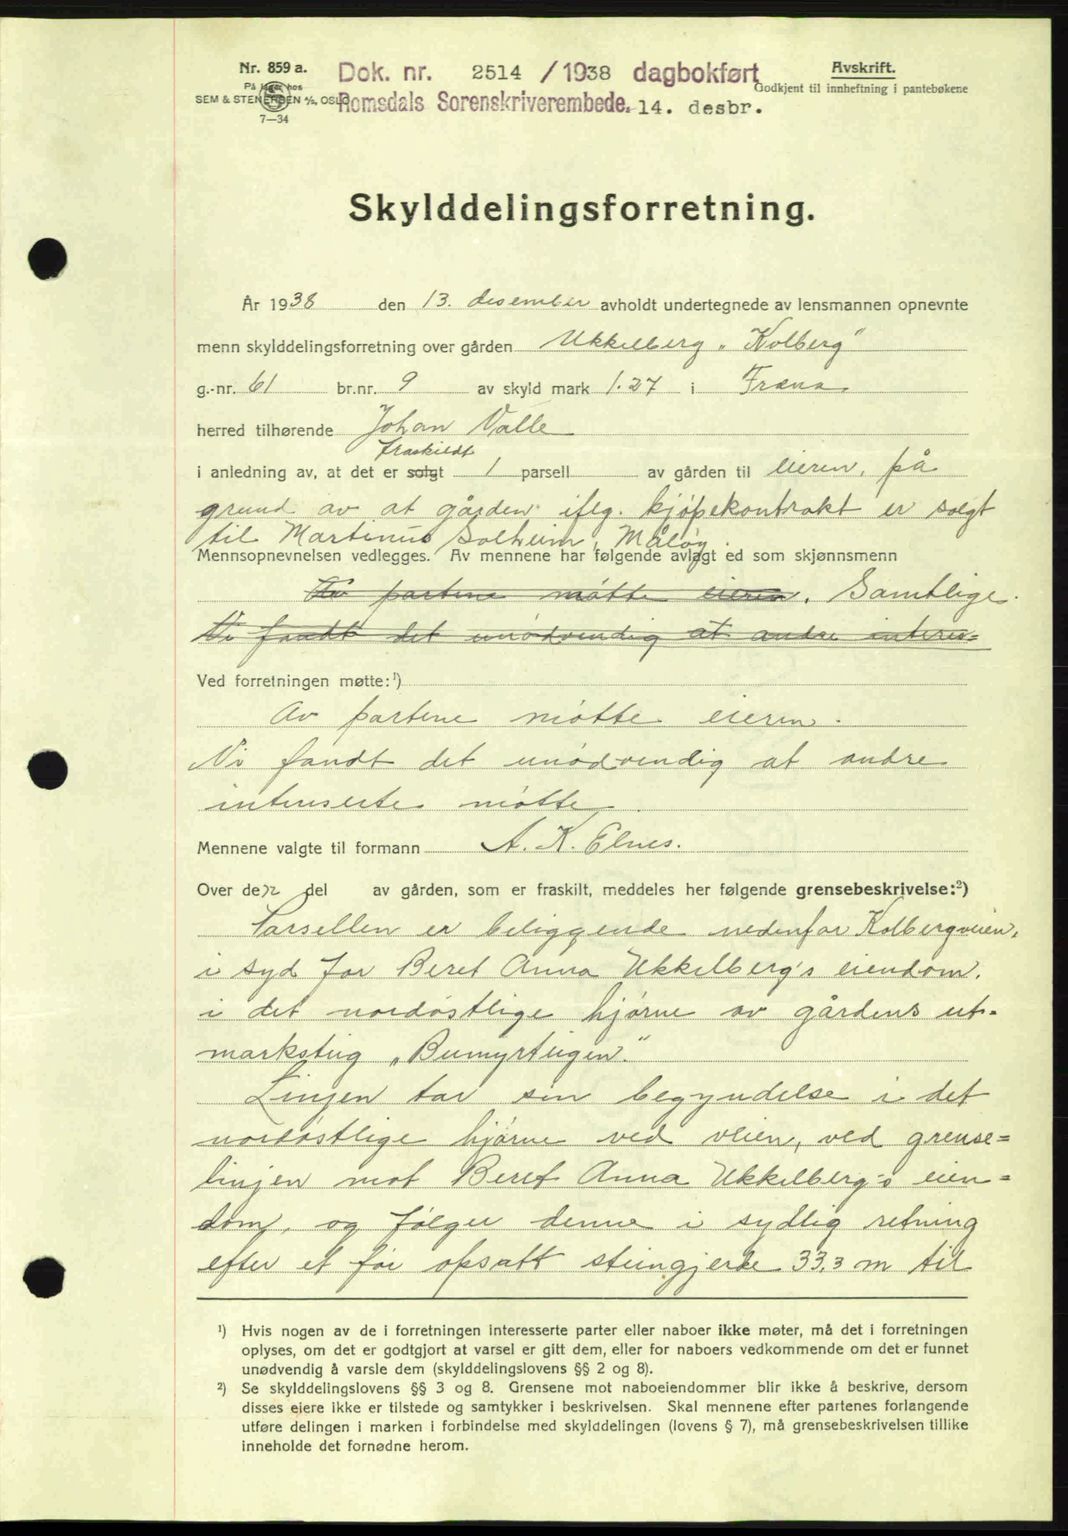 Nr. 859 a.
På lager hos
SEM & STENERSEN A/S, OSLO
7—34
Dok. nr. 2514 / 1938 dagbokført
Romsdals Sorenskriverembede. 14. desbr.
Avskrift.
Godkjent til innheftning i pantebøkene
Skylddelingsforretning.
År 1938 den 13. desember avholdt undertegnede av lensmannen opnevnte
menn skylddelingsforretning over gården Ukkelberg „Kolberg"
g.-nr. 61 br.nr. 9 av skyld mark 1.27 i Fræna
herred tilhørende Johan Valle
fraskildt
i anledning av, at det er solgt 1 parsell av gården til eieren, på
grund av at gården iflg. kjøpekontrakt er solgt
til Martinus Solheim, Måløy.
Mennsopnevnelsen vedlegges. Av mennene har følgende avlagt ed som skjønnsmenn
Av partene møtte eieren. Samtlige.
Vi fandt det unødvendig at andre interes=
Ved forretningen møtte:¹)
Av partene møtte eieren.
Vi fandt det unødvendig at andre
interserte møtte
Mennene valgte til formann A. K. Elnes.
Over den del av gården, som er fraskilt, meddeles her følgende grensebeskrivelse:²)
Parsellen er beliggende nedenfor Kolbergveien,
i syd for Beret Anna Ukkelberg's eiendom.
i det nordøstlige hjørne av gårdens ut-
markstiig „Bumyrteigen."
Linjen tar sin begyndelse i det
nordøstlige hjørne ved veien, ved grense=
linjen mot Beret Anna Ukkelberg's eien=
dom, og følger denne i sydlig retning
efter et før opsatt steingjerde 33,3 m til
¹) Hvis nogen av de i forretningen interesserte parter eller naboer ikke møter, må det i forretningen
oplyses, om det er godtgjort at varsel er gitt dem, eller for naboers vedkommende om det er funnet
unødvendig å varsle dem (skylddelingslovens §§ 2 og 8).
²) Se skylddelingslovens §§ 3 og 8. Grensene mot naboeiendommer blir ikke å beskrive, dersom
disses eiere ikke er tilstede og samtykker i beskrivelsen. Skal mennene efter partenes forlangende
utføre delingen i marken i forbindelse med skylddelingen (lovens § 7), må grensebeskrivelsen tillike
inneholde det fornødne herom.